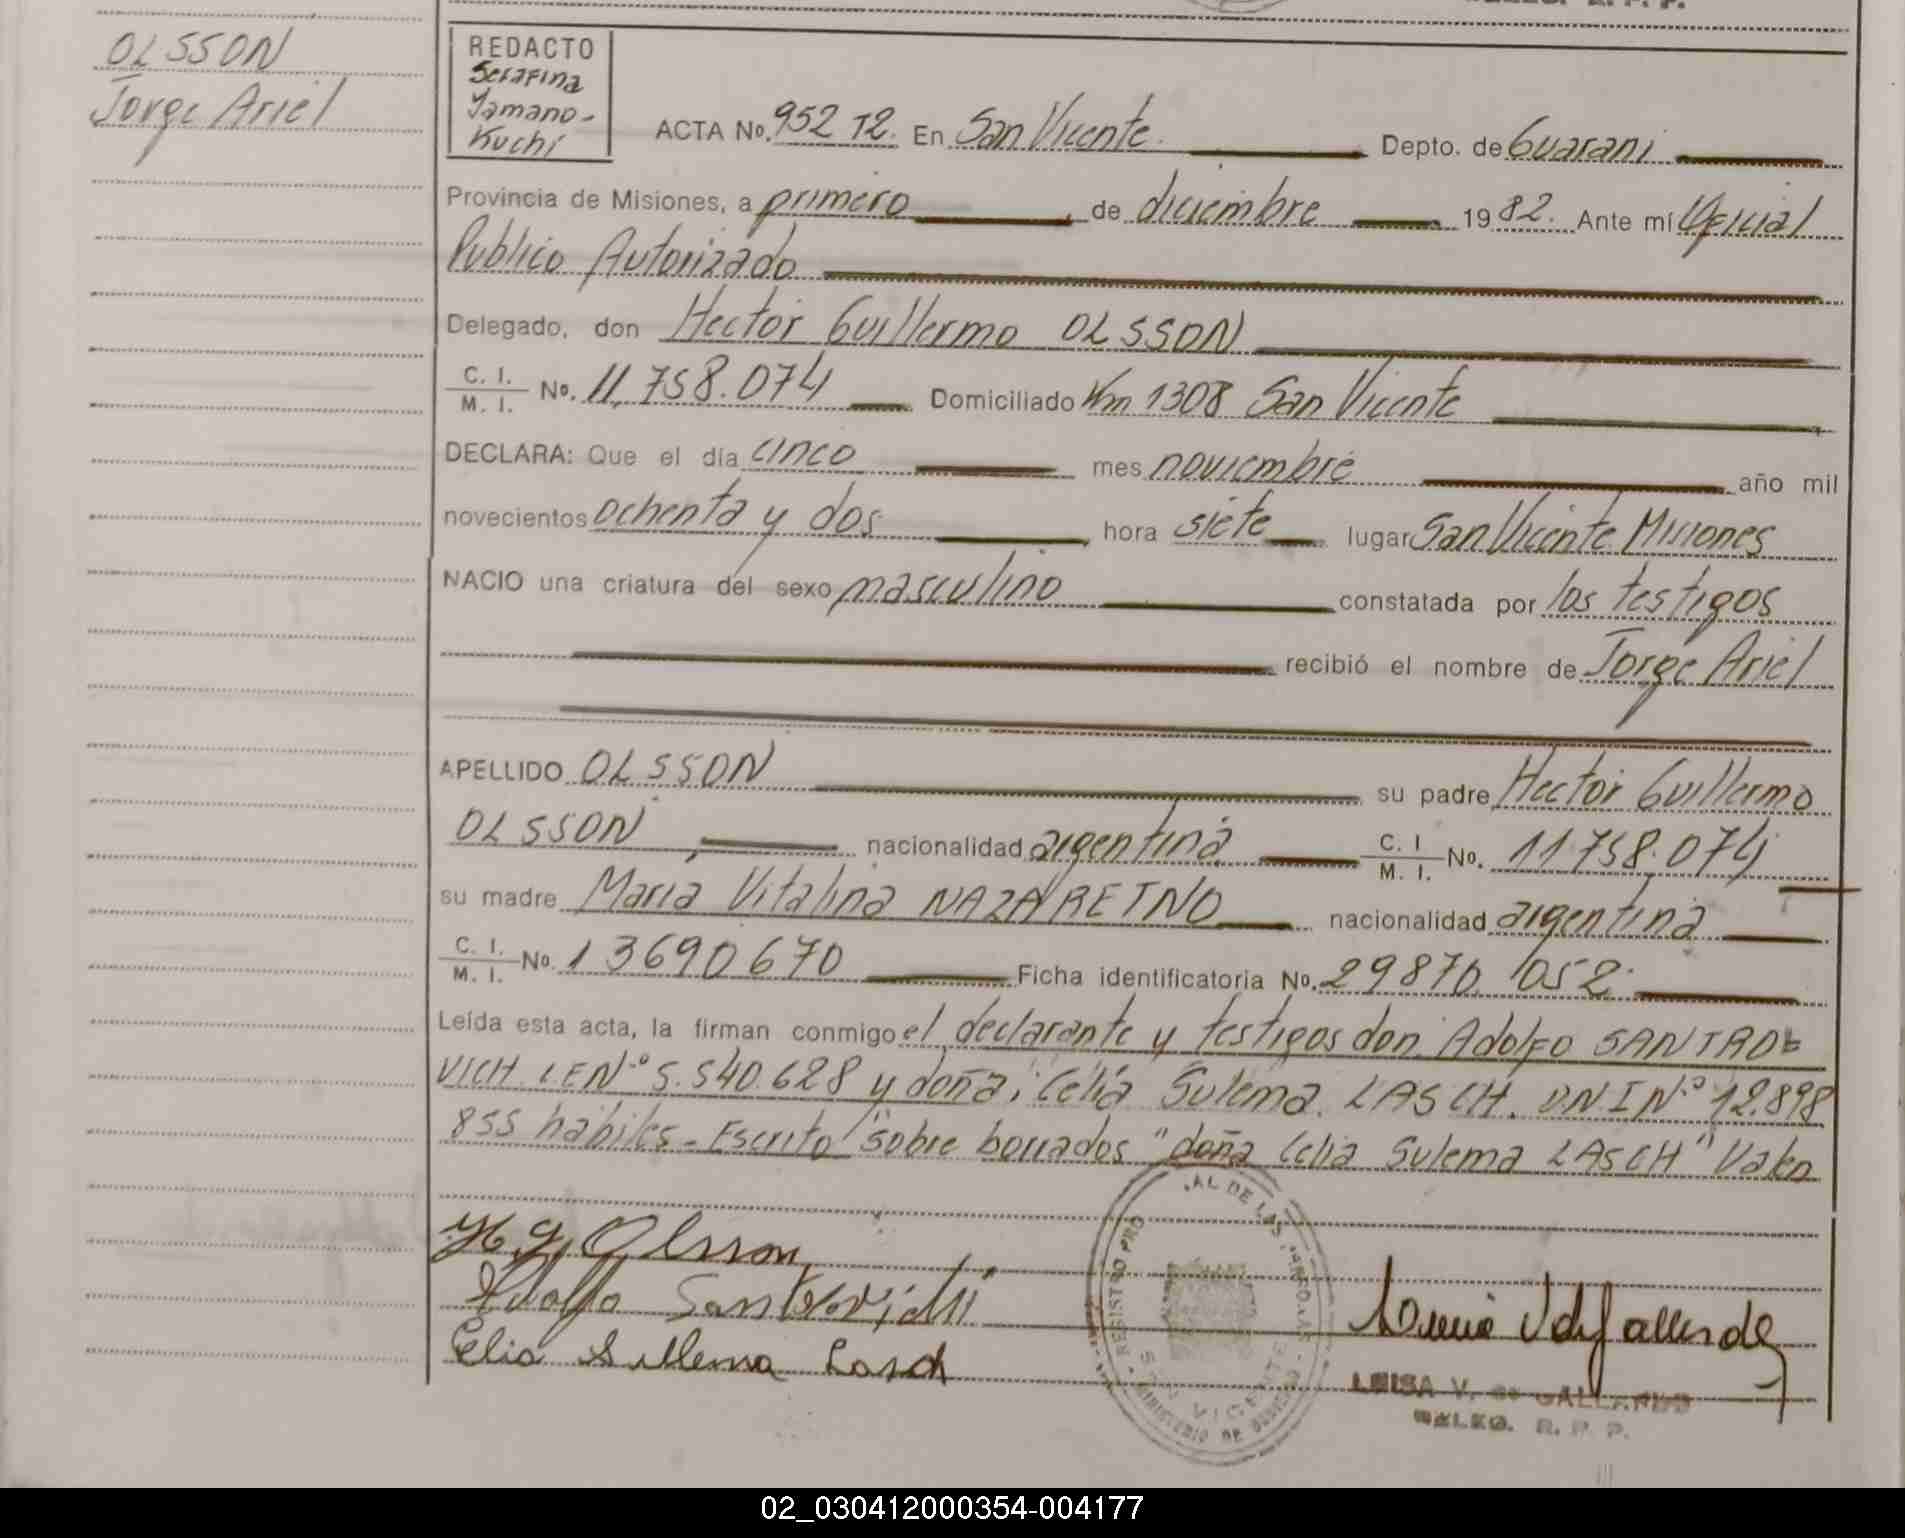 OLSSON
Jorge Ariel
REDACTO
Serafina
Yamano-
Kuchi
ACTA No. 952 T2. En San Vicente. Depto. de Guarani
Provincia de Misiones, a primero de diciembre 1982. Ante mí Oficial
Publico Autorizado
Delegado, don Hector Guillermo OLSSON
C. I. / M. I. No. 11.758.074 Domiciliado Km 1308 San Vicente
DECLARA: Que el día cinco mes noviembre año mil
novecientos ochenta y dos hora siete lugar San Vicente Misiones
NACIO una criatura del sexo masculino constatada por los testigos
recibió el nombre de Jorge Ariel
APELLIDO OLSSON su padre Hector Guillermo
OLSSON nacionalidad argentina C. I / M. I. No. 11.758.074
su madre Maria Vitalina NAZARETNO nacionalidad argentina
C. I. / M. I. No. 13690670 Ficha identificatoria No. 29870.052.
Leída esta acta, la firman conmigo el declarante y testigos don Adolfo SANTRO
VICH. LE Nº 5.540.628 y doña, Celia Sulema LASCH. DNI Nº 12.898
855 habiles - Escrito "sobre borrados "doña Celia Sulema LASCH" Valen
H G Olsson
Adolfo
Celia Sulema Lasch
REGISTRO
AL DE LAS
SAN VICENTE
MINISTERIO DE
LUISA V. de GALLARDO
DELEG. R. P. P.
02_030412000354-004177